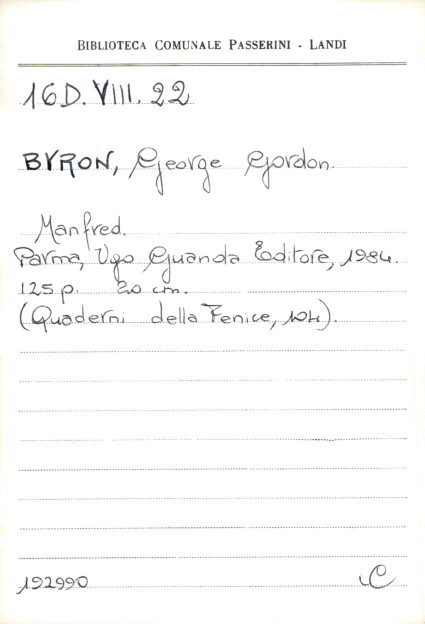 BIBLIOTECA COMUNALE PASSERINI - LANDI
16D.VIII.22
BYRON, George Gordon.
Manfred.
Parma, Ugo Guanda Editore, 1984.
125 p. 20 cm.
(Quaderni della Fenice, 104).
192990 C